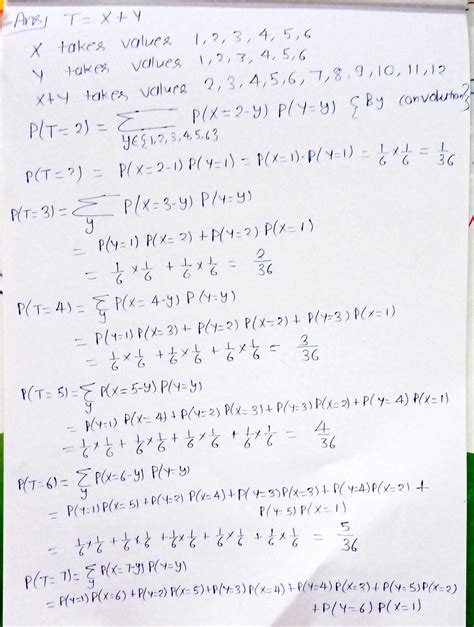 Ans) T = X+Y
X takes values 1, 2, 3, 4, 5, 6
Y takes values 1, 2, 3, 4, 5, 6
X+Y takes values 2, 3, 4, 5, 6, 7, 8, 9, 10, 11, 12
P(T=2) = Σ P(X=2-y) P(Y=y) {By convolution}
y∈{1,2,3,4,5,6}
P(T=2) = P(X=2-1) P(Y=1) = P(X=1)·P(Y=1) = 1/6 × 1/6 = 1/36
P(T=3) = Σ P(X=3-y) P(Y=y)
y
= P(Y=1) P(X=2) + P(Y=2) P(X=1)
= 1/6 × 1/6 + 1/6 × 1/6 = 2/36
P(T=4) = Σ P(X=4-y) P(Y=y)
y
= P(Y=1) P(X=3) + P(Y=2) P(X=2) + P(Y=3) P(X=1)
= 1/6 × 1/6 + 1/6 × 1/6 + 1/6 × 1/6 = 3/36
P(T=5) = Σ P(X=5-y) P(Y=y)
y
= P(Y=1) P(X=4) + P(Y=2) P(X=3) + P(Y=3) P(X=2) + P(Y=4) P(X=1)
= 1/6 × 1/6 + 1/6 × 1/6 + 1/6 × 1/6 + 1/6 × 1/6 = 4/36
P(T=6) = Σ P(X=6-y) P(Y=y)
y
= P(Y=1) P(X=5) + P(Y=2) P(X=4) + P(Y=3) P(X=3) + P(Y=4) P(X=2) +
P(Y=5) P(X=1)
= 1/6 × 1/6 + 1/6 × 1/6 + 1/6 × 1/6 + 1/6 × 1/6 + 1/6 × 1/6 = 5/36
P(T=7) = Σ P(X=7-y) P(Y=y)
y
= P(Y=1) P(X=6) + P(Y=2) P(X=5) + P(Y=3) P(X=4) + P(Y=4) P(X=3) + P(Y=5) P(X=2)
+ P(Y=6) P(X=1)